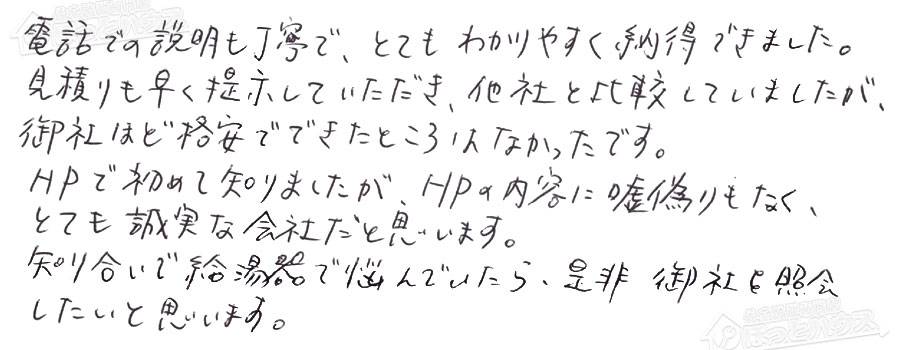 電話での説明も丁寧で、とてもわかりやすく納得できました。
見積りも早く提示していただき、他社と比較していましたが、
御社ほど格安でできたところはなかったです。
HPで初めて知りましたが、HPの内容に嘘偽りもなく、
とても誠実な会社だと思います。
知り合いで給湯器で悩んでいたら、是非 御社を照会
したいと思います。